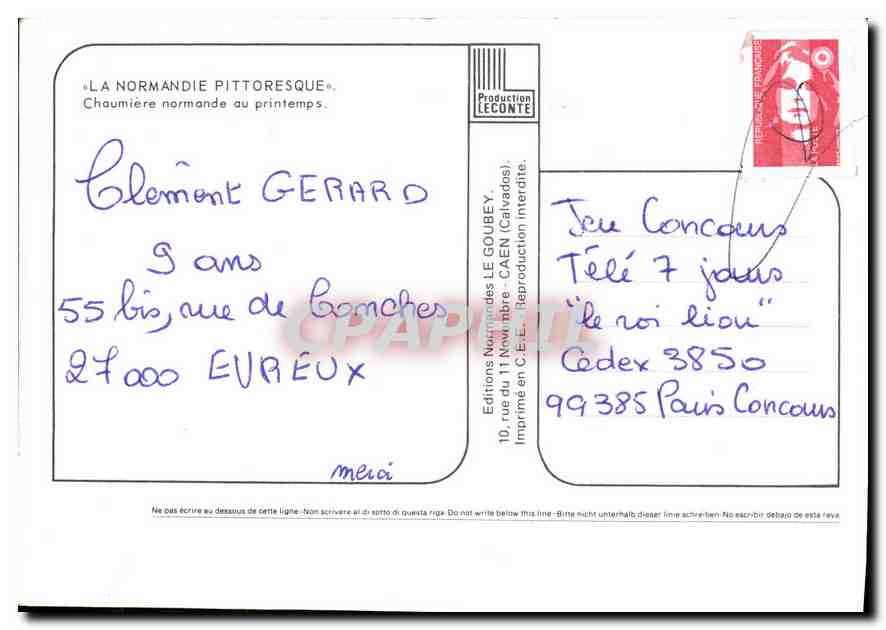 «LA NORMANDIE PITTORESQUE».
Chaumière normande au printemps.
Production
LECONTE
REPUBLIQUE FRANÇAISE
LA POSTE
Clément GERARD
9 ans
55 bis, rue de Conches
27000 EVREUX
merci
Editions Normandes LE GOUBEY.
10, rue du 11 Novembre - CAEN (Calvados).
Imprimé en C.E.E. - Reproduction interdite.
Jeu Concours
Télé 7 jours
"le roi lion"
Cedex 3850
99385 Paris Concours
CPAPHIL
Ne pas écrire au dessous de cette ligne - Non scrivere al di sotto di questa riga - Do not write below this line - Bitte nicht unterhalb dieser linie schreiben - No escribir debajo de esta raya